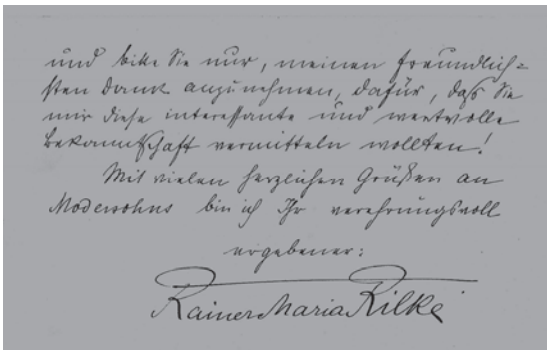 und bitte Sie nur, meinen freundlich=
sten Dank anzunehmen, dafür, daß Sie
mir diese interessante und wertvolle
Bekanntschaft vermitteln wollten!
Mit vielen herzlichen Grüßen an
Modersohns bin ich Ihr verehrungsvoll
ergebener:
Rainer Maria Rilke